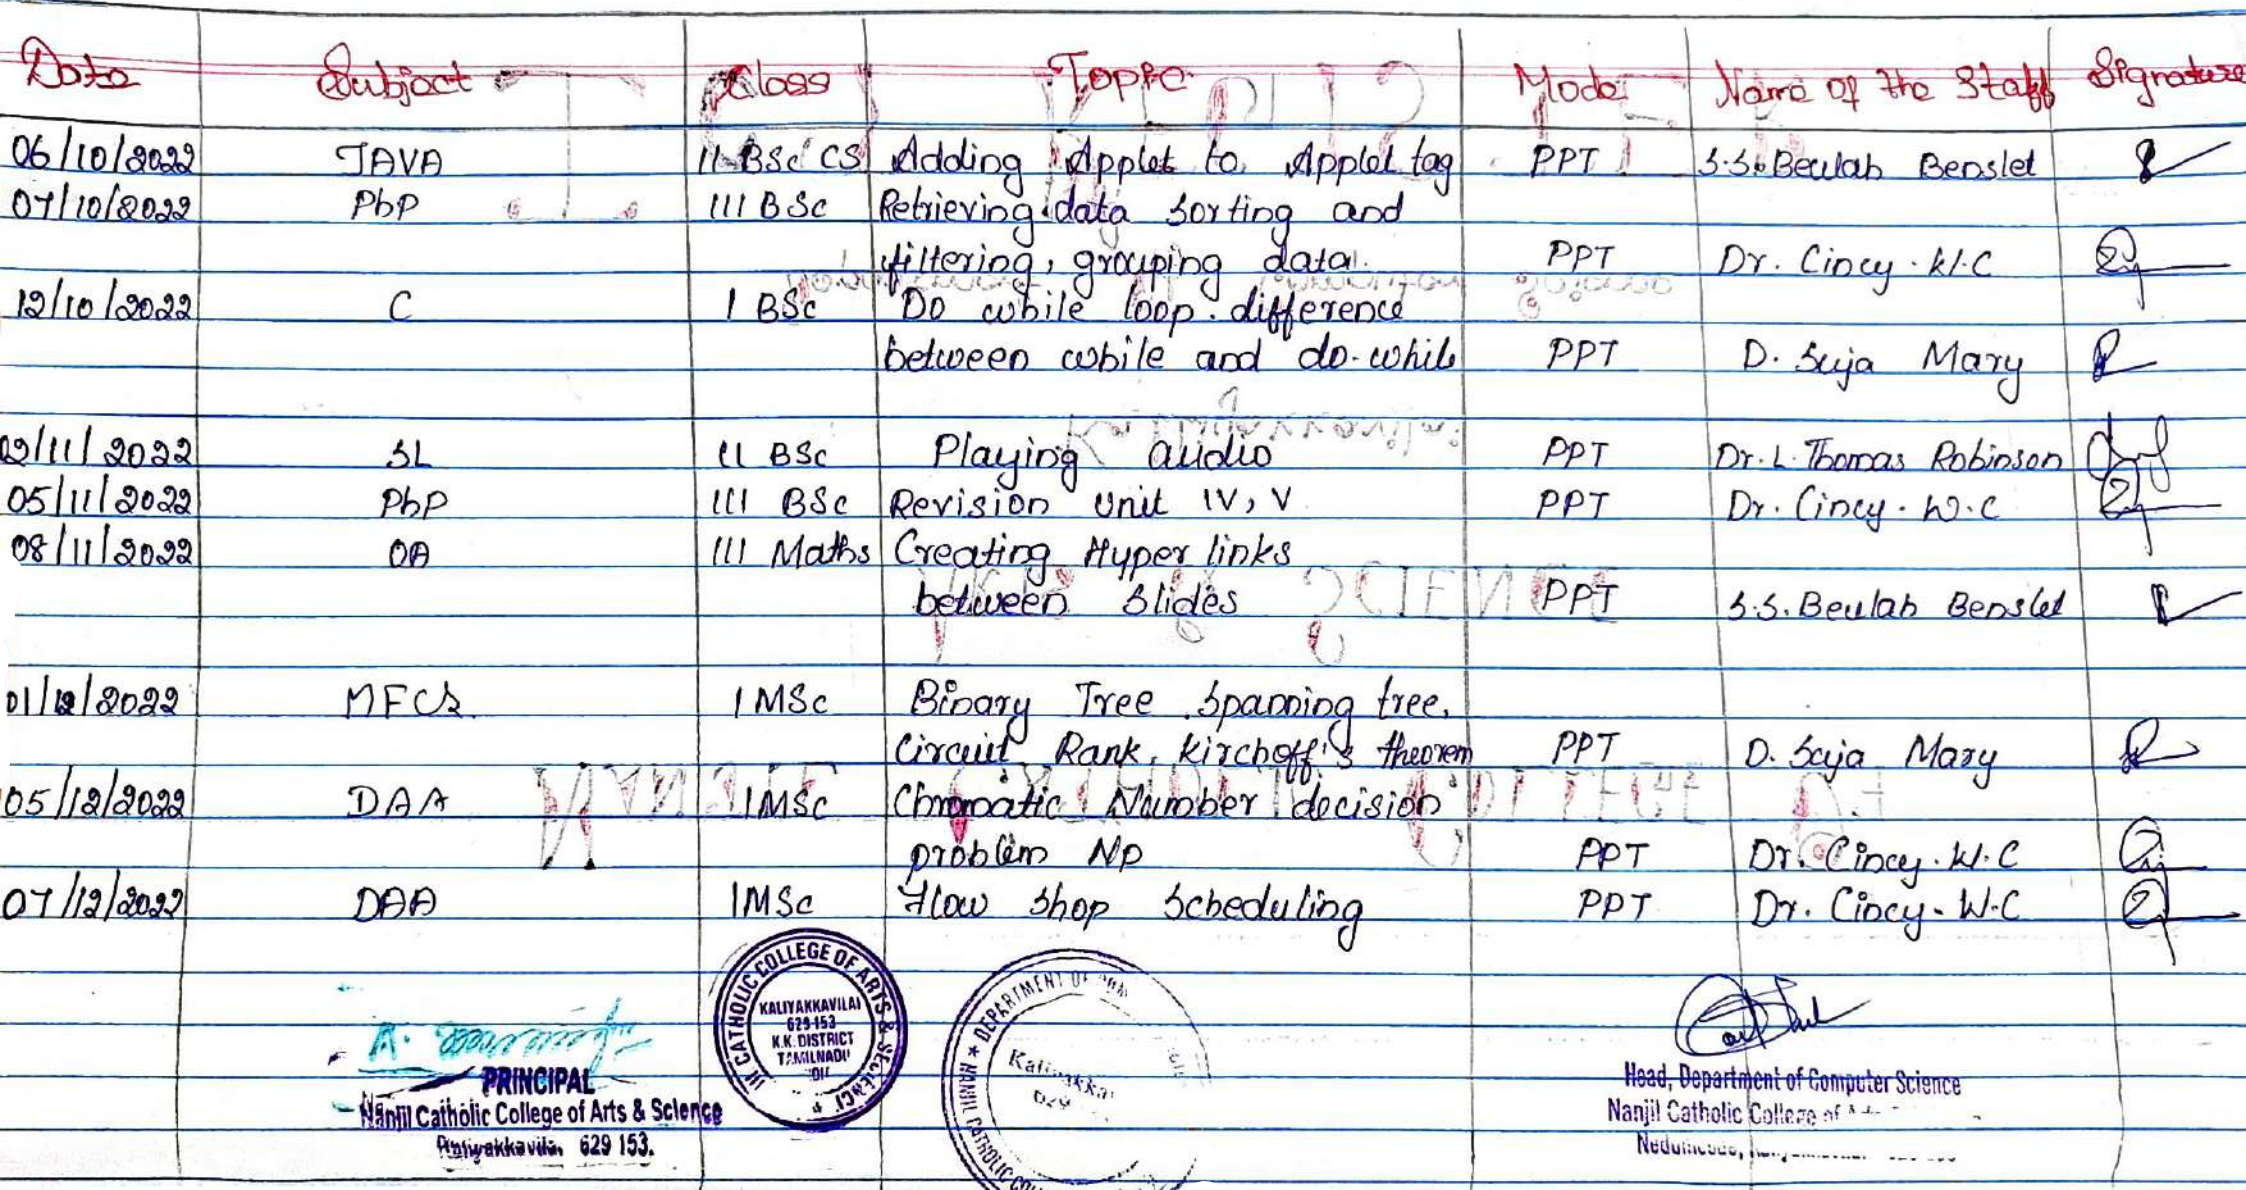 Date Subject Class Topic Mode Name of the Staff Signature
06/10/2022 JAVA II BSc CS Adding Applet to Applet tag PPT S.S. Beulah Benslet
07/10/2022 PhP III BSc Retrieving data sorting and
filtering, grouping data. PPT Dr. Cincy. W.C
12/10/2022 C I BSc Do while loop. difference
between while and do-while PPT D. Suja Mary
02/11/2022 SL II BSc Playing audio PPT Dr. L. Thomas Robinson
05/11/2022 PhP III BSc Revision Unit IV, V PPT Dr. Cincy. W.C
08/11/2022 OA III Maths Creating Hyper links
between slides PPT S.S. Beulah Benslet
01/12/2022 MFCS I MSc Binary Tree, Spanning tree,
Circuit Rank, Kirchoff's theorem PPT D. Suja Mary
05/12/2022 DAA I MSc Chromatic Number decision
problem NP PPT Dr. Cincy. W.C
07/12/2022 DAA I MSc Flow shop scheduling PPT Dr. Cincy. W.C
CATHOLIC COLLEGE OF ARTS & SCIENCE
KALIYAKKAVILAI
629 153
K.K. DISTRICT
TAMILNADU
★ DEPARTMENT OF
NANJIL CATHOLIC
PRINCIPAL
Nanjil Catholic College of Arts & Science
Kaliyakkavilai, 629 153.
Head, Department of Computer Science
Nanjil Catholic College of